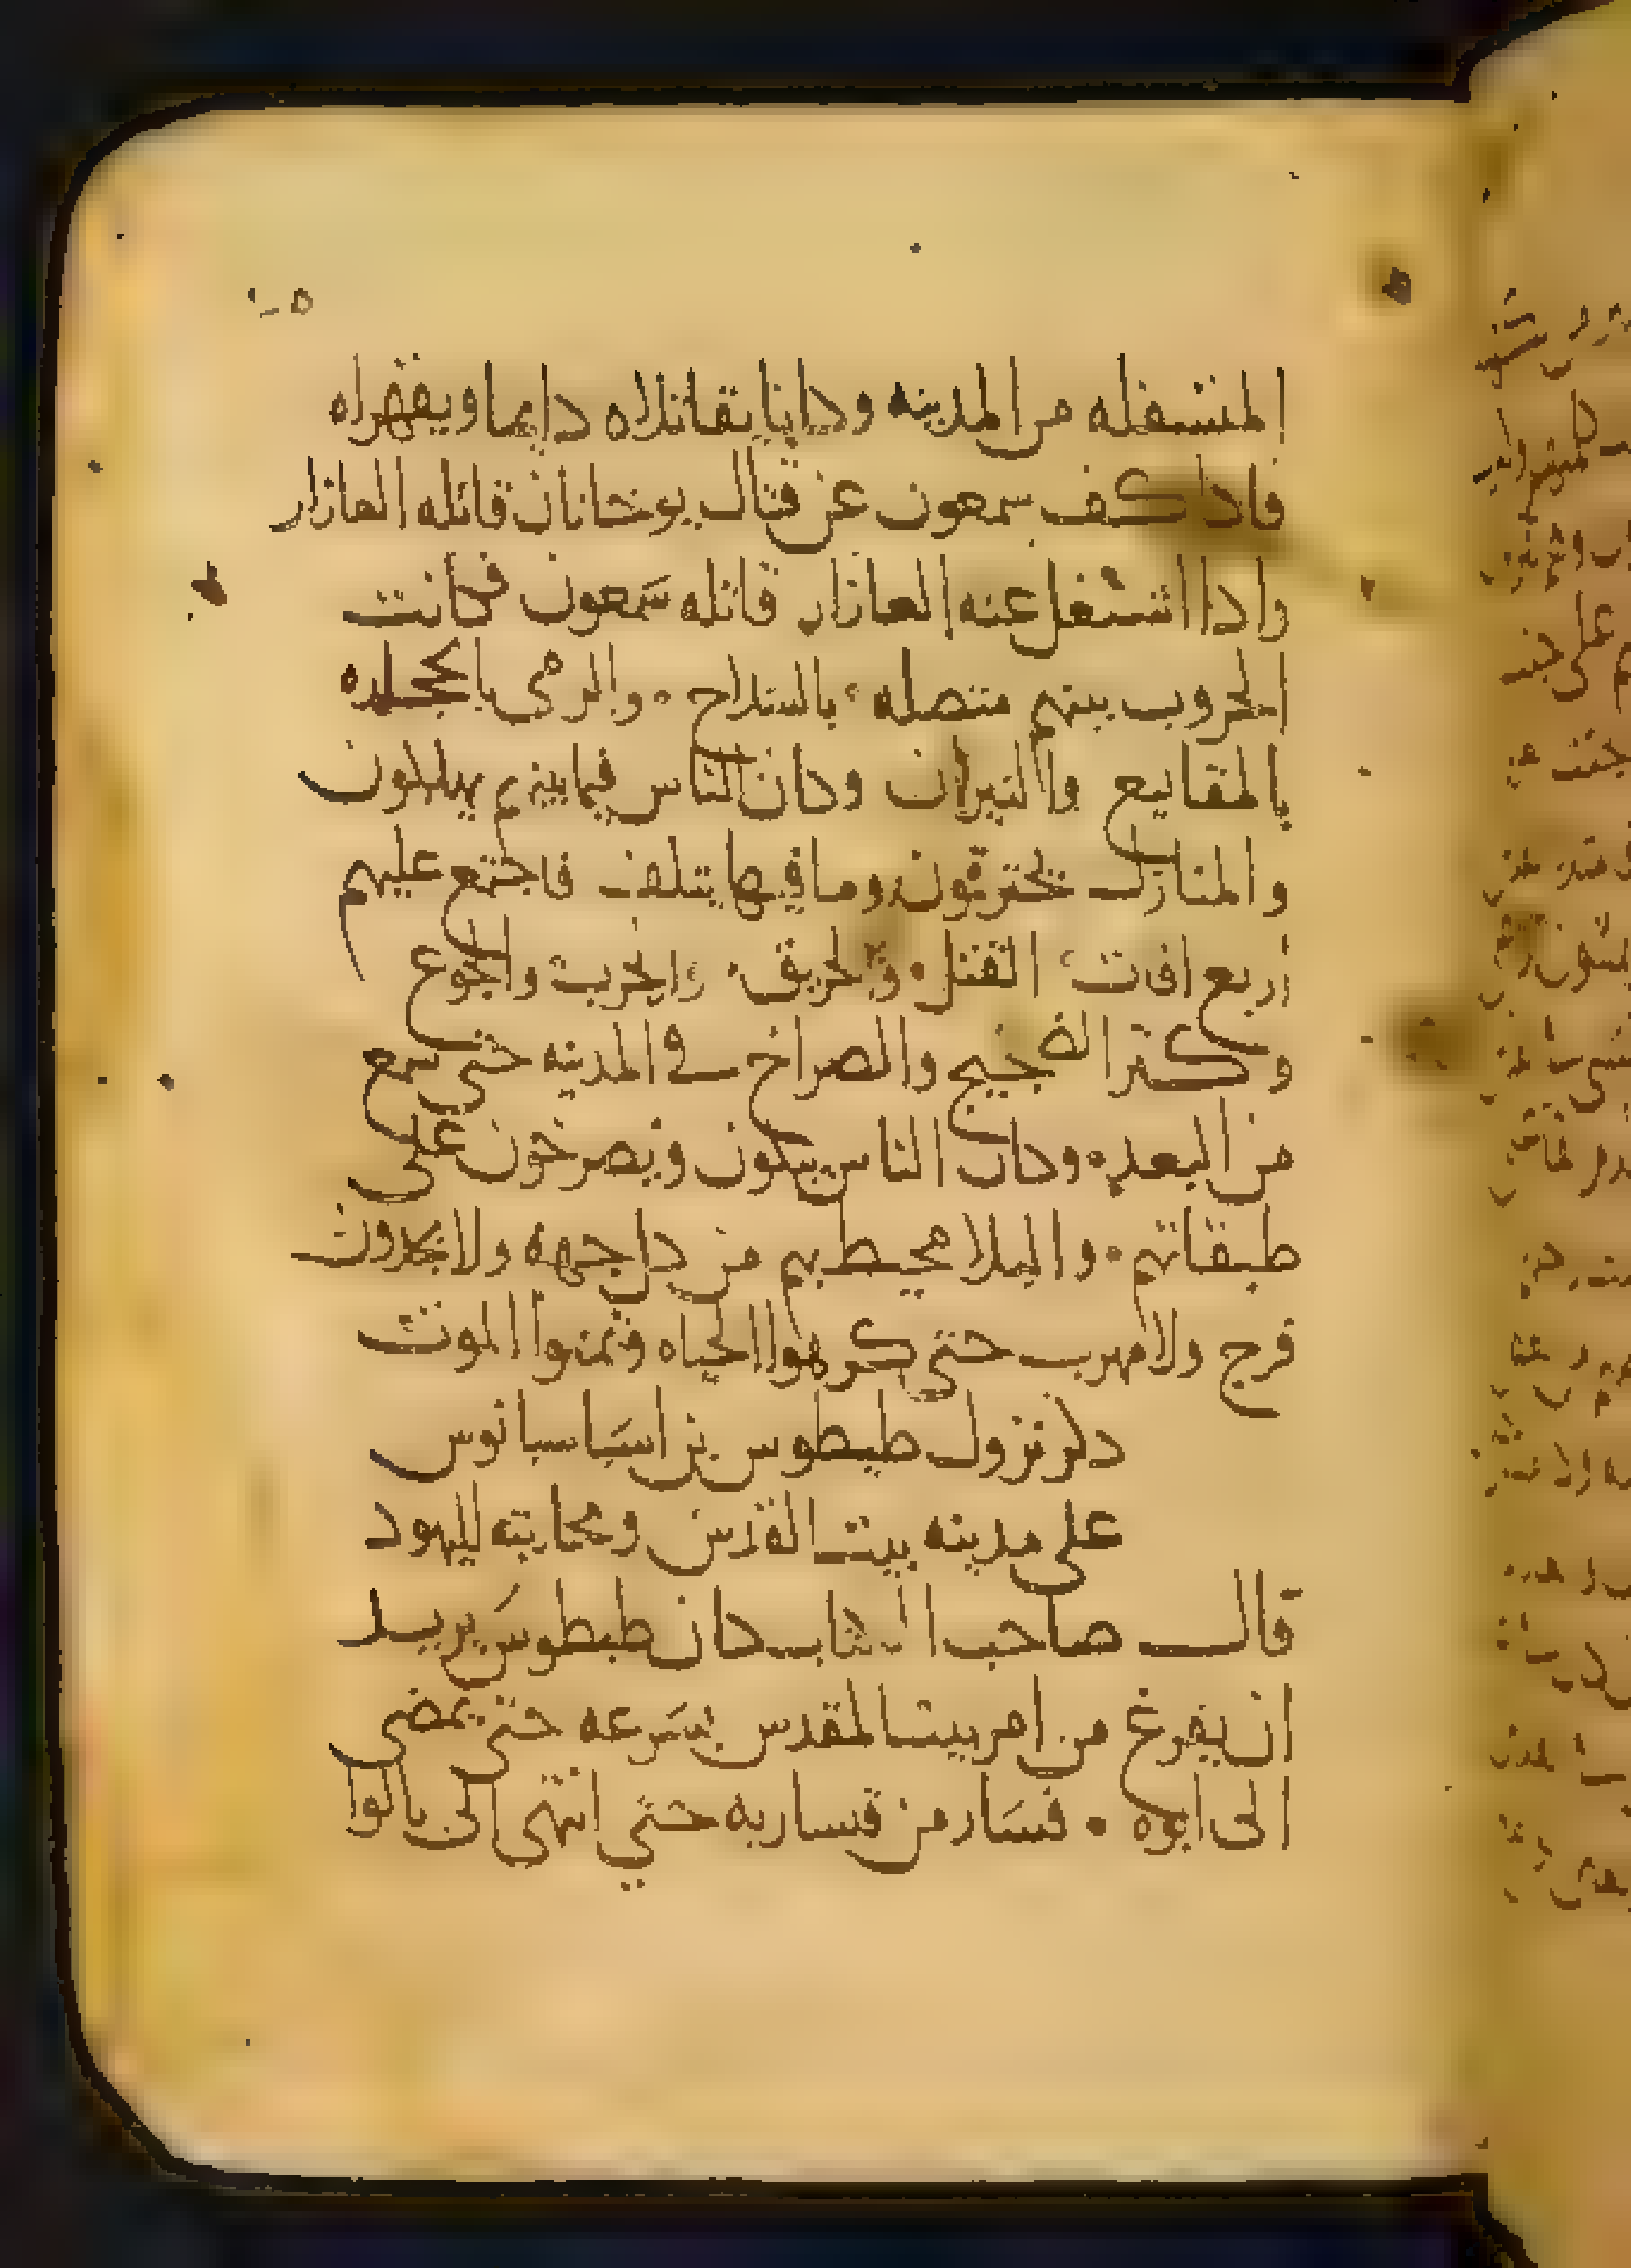 المتسفله من المدينه وكانا يقاتلاه دايما ويقهراه
فاذا كف سمعون عن قتال يوحانان قاتله العازار
واذا اشتغل عنه العازار قاتله سمعون فكانت
الحروب بينهم متصله بالسلاح والرمي بالحجاره
بالمقاليع والنيران وكان الناس فيما بينهم يهلكون
والمنازل تحترق وما فيها يتلف فاجتمع عليهم
اربع افات القتل والحريق والحرب والجوع
وكثر الضجيج والصراخ في المدينه حتى سمع
من البعد وكان الناس يبكون ويصرخون على
طبقاتهم والبلا محيط بهم من كل جهه ولا يجدون
فرج ولا مهرب حتى كرهوا الحياه وتمنوا الموت
ذكر نزول طيطوس بن اسباسيانوس
على مدينه بيت القدس ومحاربته لليهود
قال صاحب الكتاب كان طيطوس يريد
ان يفرغ من امر بيت المقدس بسرعه حتى يمضي
الى ابوه فسار من قيساريه حتى انتهى الى يالوا